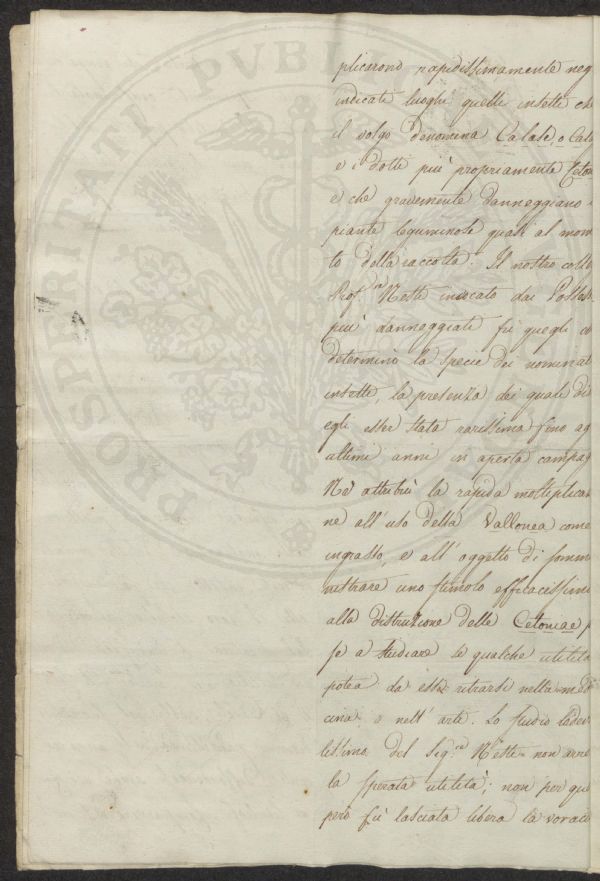 PROSPERITATI PVBL
plicarono rapidissimamente neg
indicati luoghi quelli insetti ch
il volgo denomina Calale, o Cala
e i dotti più propriamente Ceton
e che gravemente danneggiano
piante leguminose quasi al mom
to della raccolta. Il nostro coll
Prof.r Nesti invocato dai Posses
più danneggiati fù quegli c
determinò la specie dei nominat
insetti, la presenza dei quali di
egli esser stata rarissima fino ag
ultimi anni in aperta campag
Nè attribuì la rapida moltiplica
ne all'uso della Vallonea come
ingrasso, e all'oggetto di somm
nistrare uno stimolo efficacissim
alla distruzione delle Cetoniae p
se a studiare se qualche utilità
potea da esse ritrarsi nella med
cina o nell'arte. Lo studio lodev
lissimo del Sig.re Nesti non arre
la sperata utilità; non per que
però fù lasciata libera la vorac